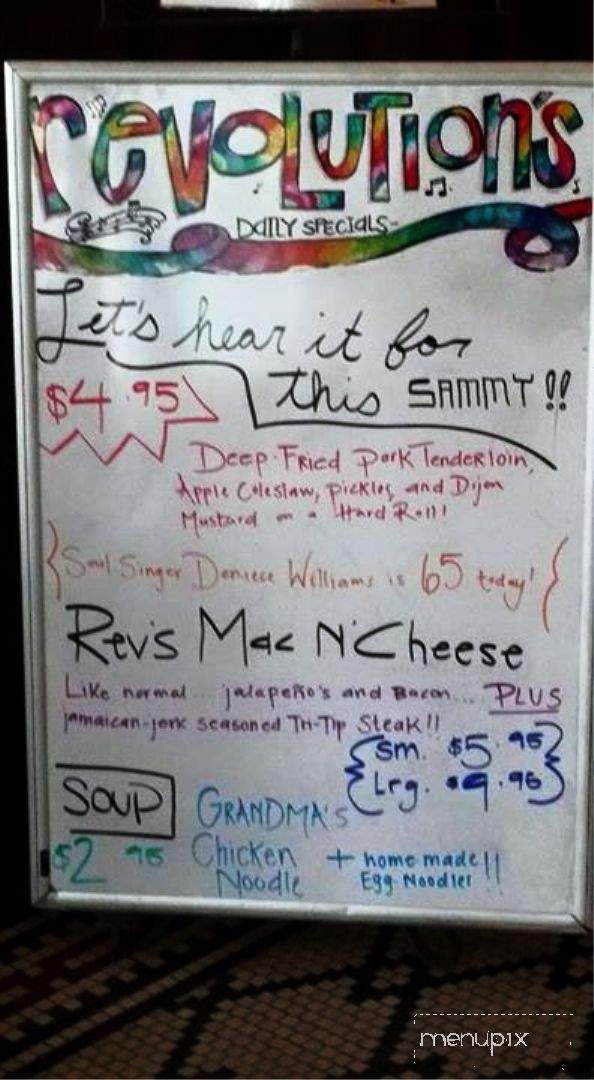 revOLUTIONS
DAILY SPECIALS-
Let's hear it for
this SAMMY!!
$4.95
Deep-Fried Pork Tenderloin,
Apple Coleslaw, pickles, and Dijon
Mustard on a Hard Roll!
{Soul Singer Deniece Williams is 65 today!}
Rev's Mac N' Cheese
Like normal... jalapeño's and Bacon... PLUS
jamaican-jerk seasoned Tri-Tip Steak!!
{Sm. $5.95}
{Lrg. $9.95}
SOUP
$2.95
GRANDMA'S
Chicken
Noodle
+ home made!!
Egg Noodles
menupix